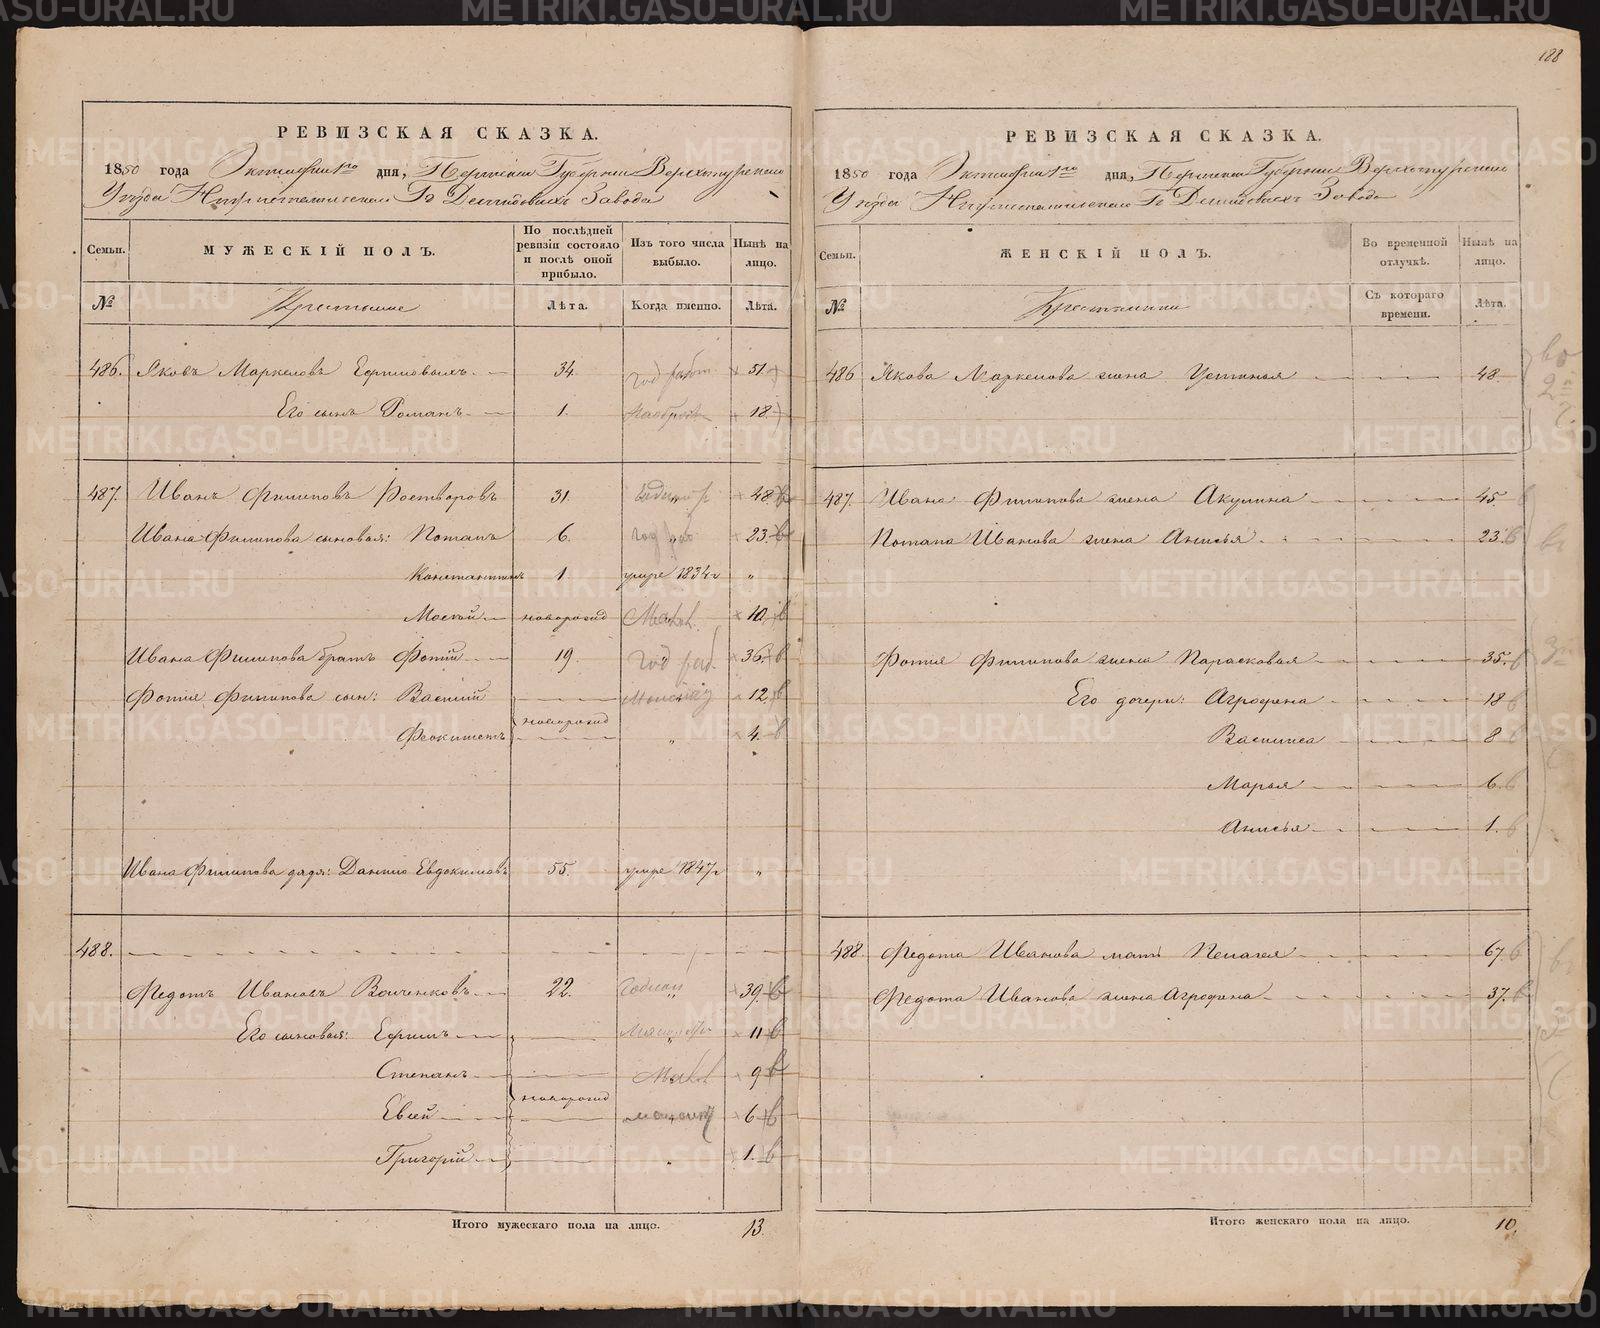 188
РЕВИЗСКАЯ СКАЗКА.
1850 года Октября 1го дня, Пермской Губернии Верхотурскаго
Уезда Нижнетагильскаго Гг Демидовыхъ Завода
Семьи. МУЖЕСКІЙ ПОЛЪ. По послѣдней ревизіи состояло и послѣ оной прибыло. Изъ того числа выбыло. Нынѣ на лицо.
№ Крестьяне Лѣта. Когда именно. Лѣта.
486. Яковъ Маркеловъ 34. 51
Его сынъ Романъ 1. 18.
487. Иванъ Филиповъ 31. 48
Ивана Филипова сыновья: Потапъ 6. 23.
Константинъ 1 умре 1834г "
Мосей новорожд 10
Ивана Филипова братъ Фотій 19. 36.
Фотія Филипова сын: Василий 12.
новорожд
Феоктистъ " 4.
Ивана Филипова дядя: Данило Евдокимовъ 55. умре 1847г "
488.
Федотъ Ивановъ 22. 39.
Его сыновья: Ефимъ 11
Степанъ 9
новорожд
Евсей 6
Григорій 1.
Итого мужескаго пола на лицо. 13.
РЕВИЗСКАЯ СКАЗКА.
1850 года Октября 1го дня, Пермской Губернии Верхотурскаго
Уезда Нижнетагильскаго Гг Демидовыхъ Завода
Семьи. ЖЕНСКІЙ ПОЛЪ. Во временной отлучкѣ. Нынѣ на лицо.
№ Крестьянки Съ котораго времени. Лѣта.
486 Якова Маркелова жена Устинья 48.
487. Ивана Филипова жена Акулина 45.
Потапа Иванова жена Анисья 23.
Фотия Филипова жена Парасковья 35.
Его дочери: Агрофена 18
Василиса 8
Марья 6.
Анисья 1.
488. Федота Иванова мать Пелагея 67.
Федота Иванова жена Агрофена 37.
Итого женскаго пола на лицо. 10.
METRIKI.GASO-URAL.RU